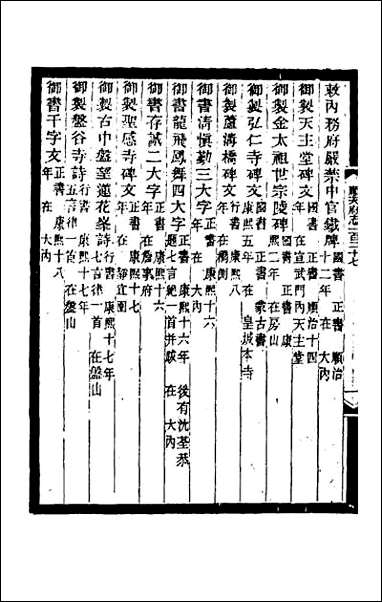 敕內務府嚴禁中官鐵牌 國書 正書 順治十二年 在 大內
御製天主堂碑文 國書 正書 順治十四年 在宣武門內天主堂
御製金太祖世宗陵碑文 國書 正書 康熙二年 在房山
御製弘仁寺碑文 國書 正書 蒙古書 康熙五年 在 皇城本寺
御製蘆溝橋碑文 正書 康熙八年 在橋側
御書清愼勤三大字 正書 康熙十六年 在大內
御書龍飛鳳舞四大字 正書 康熙十六年 後有沈荃恭題七言絕一首并跋 在 大內
御書存誠二大字 正書 康熙十六年 在詹事府
御製聖感寺碑文 行書 康熙十七年 在靜宜園
御製古中盤望蓮花峯詩 行書 康熙十七年 七言律一首 在盤山
御製盤谷寺詩 行書 康熙十七年 五言律一首 在盤山
御書千字文 正書 康熙十八年 在 大內
順天府志一百二十七